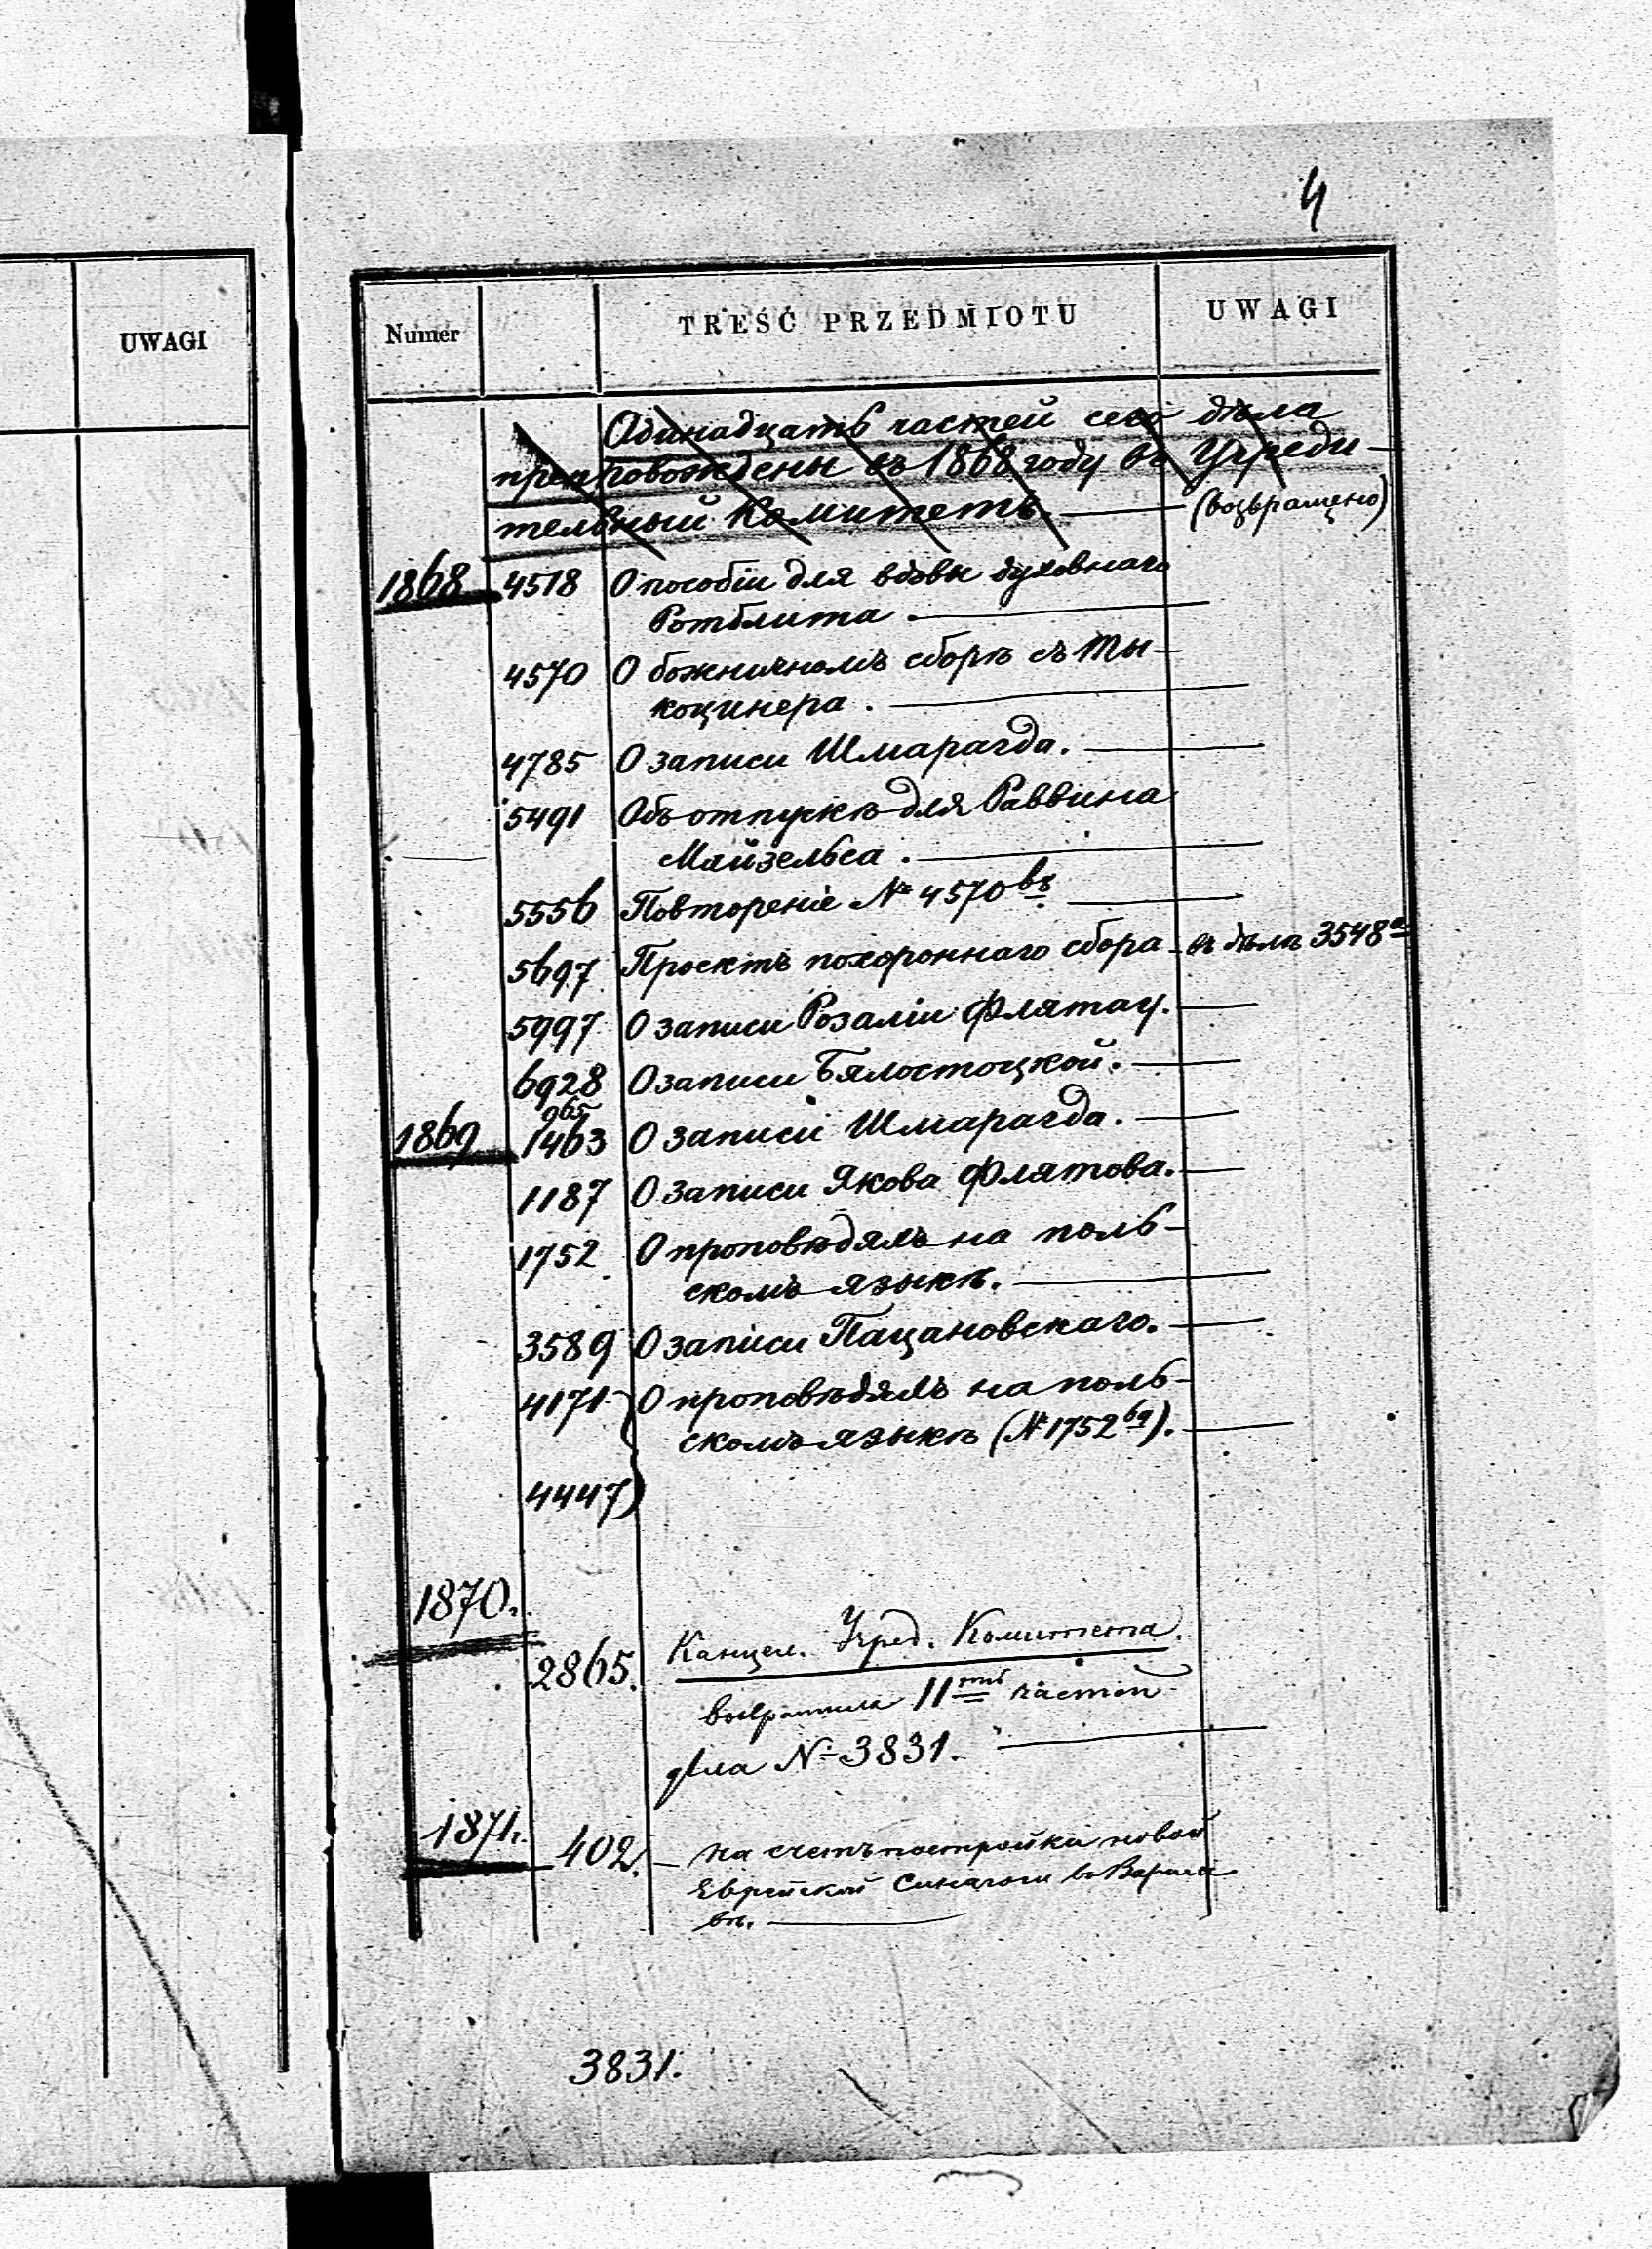 4
UWAGI
Numer TREŚĆ PRZEDMIOTU UWAGI
Одинадцать частей сего дѣла
препровождены въ 1868 году въ Учреди-
тельный Комитетъ. (возвращено)
1868 4518 О пособіи для вдовы духовнаго
Ротблита.
4570 О божничномъ сборѣ съ Ты-
коцинера.
4785 О записи Шмарагда.
5491 Объ отпускѣ для Раввина
Майзельса.
5556 Повтореніе № 4570
5697 Проектъ похороннаго сбора - въ дѣлѣ 3548
5997 О записи Розаліи Флятау.
6928 О записи Бялостоцкой.
965
1869 1463 О записи Шмарагда.
1187 О записи Якова Флятова.
1752 О проповѣдяхъ на поль-
скомъ языкѣ.
3589 О записи Пацановскаго.
4171 О проповѣдяхъ на поль-
скомъ языкѣ (№ 1752 69).
4447
1870.
2865. Канцел. Учред. Комитета.
возвратила 11 частей
дѣла № 3831.
1871. 402. - на счетъ постройки новой
Еврейской Синагоги въ Варша
вѣ.
3831.